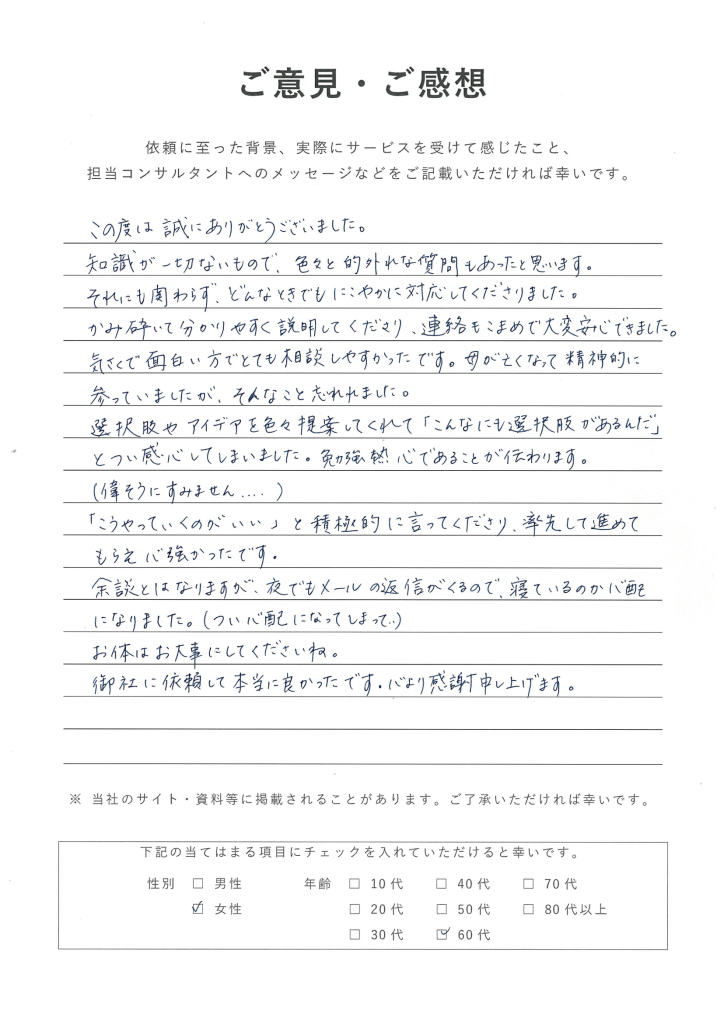 ご意見・ご感想
依頼に至った背景、実際にサービスを受けて感じたこと、
担当コンサルタントへのメッセージなどをご記載いただければ幸いです。
この度は誠にありがとうございました。
知識が一切ないもので、色々と的外れな質問もあったと思います。
それにも関わらず、どんなときでもにこやかに対応してくださりました。
かみ砕いて分かりやすく説明してくださり、連絡もこまめで大変安心できました。
気さくで面白い方でとても相談しやすかったです。母が亡くなって精神的に
参っていましたが、そんなこと忘れれました。
選択肢やアイデアを色々提案してくれて「こんなにも選択肢があるんだ」
とつい感心してしまいました。勉強熱心であることが伝わります。
(偉そうにすみません....)
「こうやっていくのがいい」と積極的に言ってくださり、率先して進めて
もらえ心強かったです。
余談とはなりますが、夜でもメールの返信がくるので、寝ているのか心配
になりました。(つい心配になってしまって..)
お体はお大事にしてくださいね。
御社に依頼して本当に良かったです。心より感謝申し上げます。
※ 当社のサイト・資料等に掲載されることがあります。ご了承いただければ幸いです。
下記の当てはまる項目にチェックを入れていただけると幸いです。
性別 □ 男性 年齢 □ 10代 □ 40代 □ 70代
☑ 女性 □ 20代 □ 50代 □ 80代以上
□ 30代 ☑ 60代